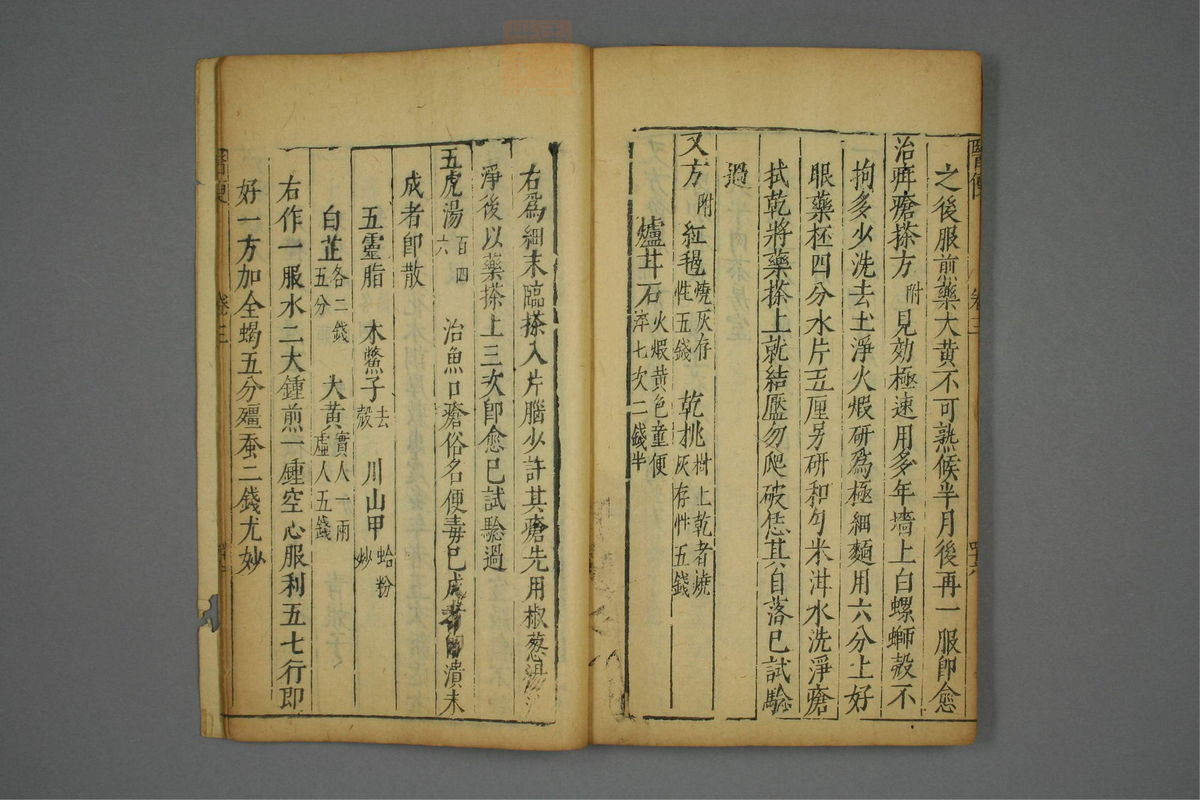 之後服煎藥大黃不可熟候半月後再一服卽愈
治疳瘡搽方附見効極速用多年墻上白螺螄殼不
拘多少洗去土淨火煆研爲極細麵用六分上好
眼藥柸四分水片五厘另研和勻米泔水洗淨瘡
拭乾將藥搽上就結靨勿爬破恁其自落已試驗
過
又方附 紅毡燒灰存性五錢 乾桃樹上乾者燒灰存性五錢
爐甘石火煆黃色童便淬七次二錢半
右爲細末臨搽入片腦少許其瘡先用椒葱湯
淨後以藥搽上三次卽愈已試驗過
五虎湯百四六 治魚口瘡俗名便毒已成者潰未
成者卽散
五靈脂 木鱉子去殼 川山甲蛤粉炒
白芷各二錢五分 大黃實人一兩虛人五錢
右作一服水二大鍾煎一鍾空心服利五七行卽
好一方加全蝎五分殭蚕二錢尤妙
醫便 卷三
醫便 卷三